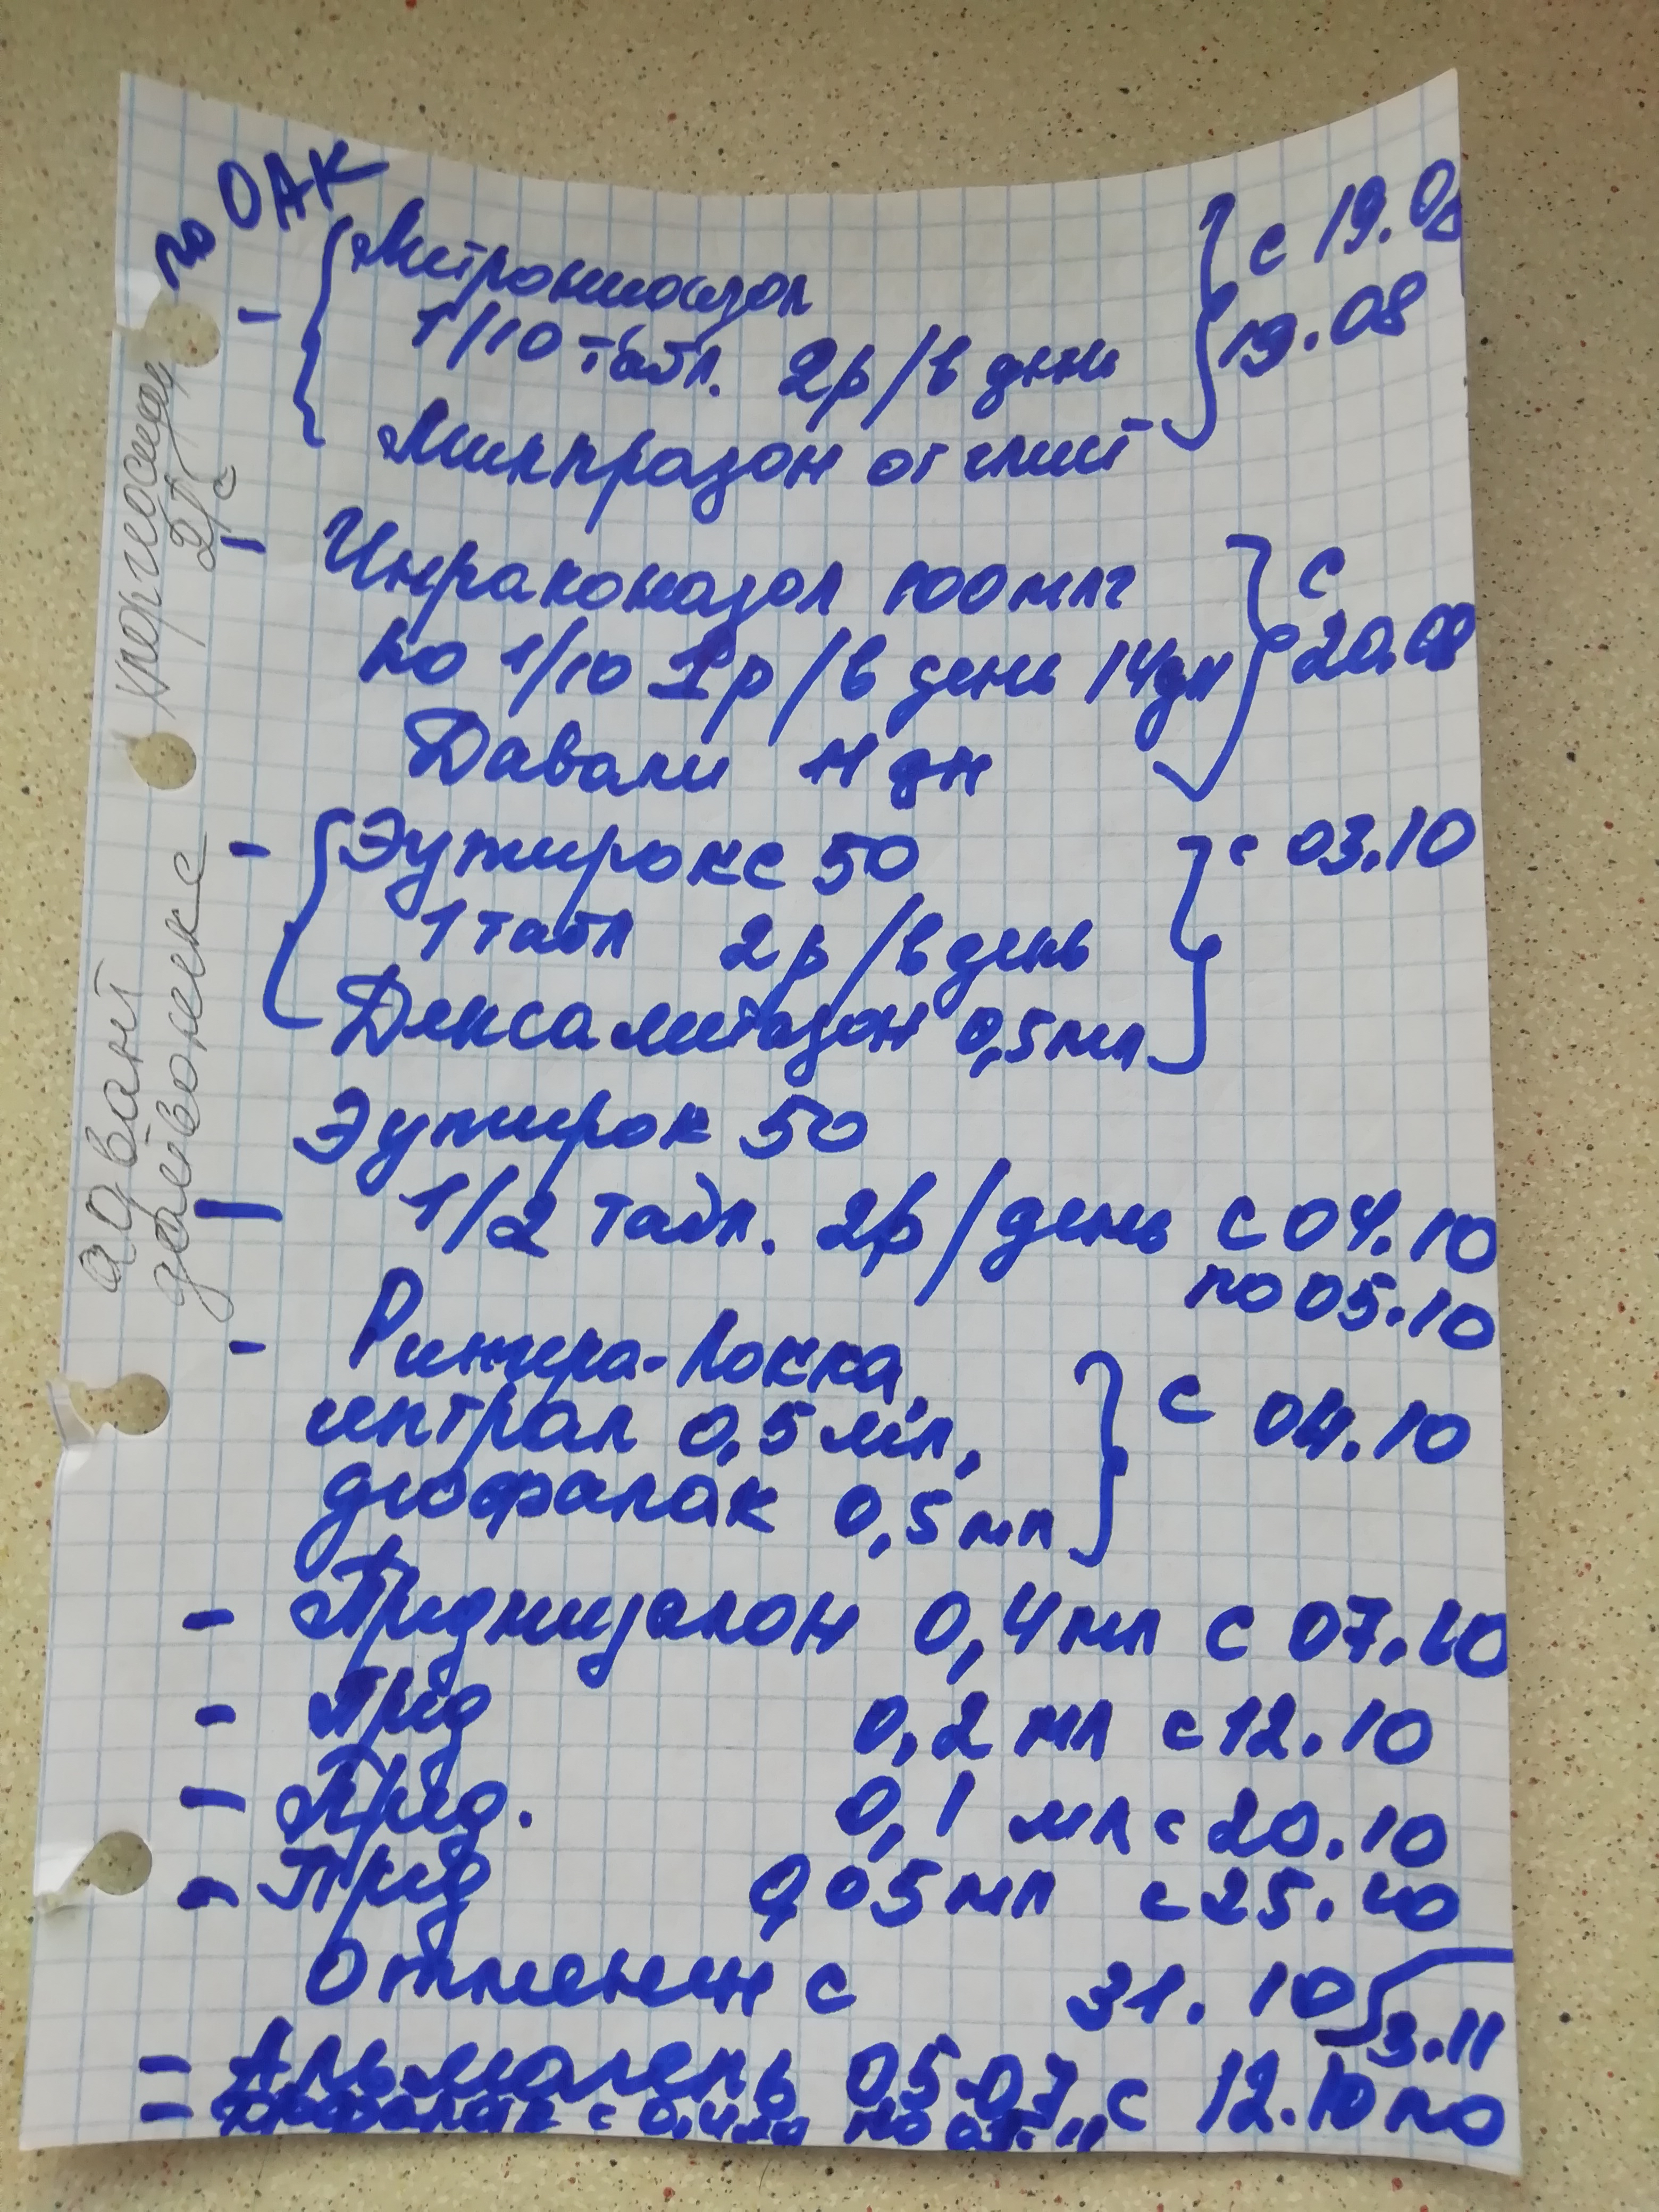 по ОАК
Метрониозол
1/10 табл. 2р/в день
с 19.08
19.08
Милпразон от глист
Интраконазол 100 млг
по 1/10 1р/в день 14дн
Давали 4 дн
с
20.08
Эутирокс 50
1 табл 2р/в день
Дексаметазон 0,5 мл
с 03.10
Эутирок 50
1/2 табл. 2р/день с 04.10
по 05.10
Рингера-Локка,
гептрал 0,5 мл,
дюфалак 0,5 мл
с 04.10
Преднизалон 0,4 мл с 07.10
Пред 0,2 мл с 12.10
Пред. 0,1 мл с 20.10
Пред 0,05 мл с 25.10
Отменен с 31.10
3.11
Альмагель 0,5-0,7 с 12.10 по
Дюфалак с 0,4 мл по
адвант
2р
с